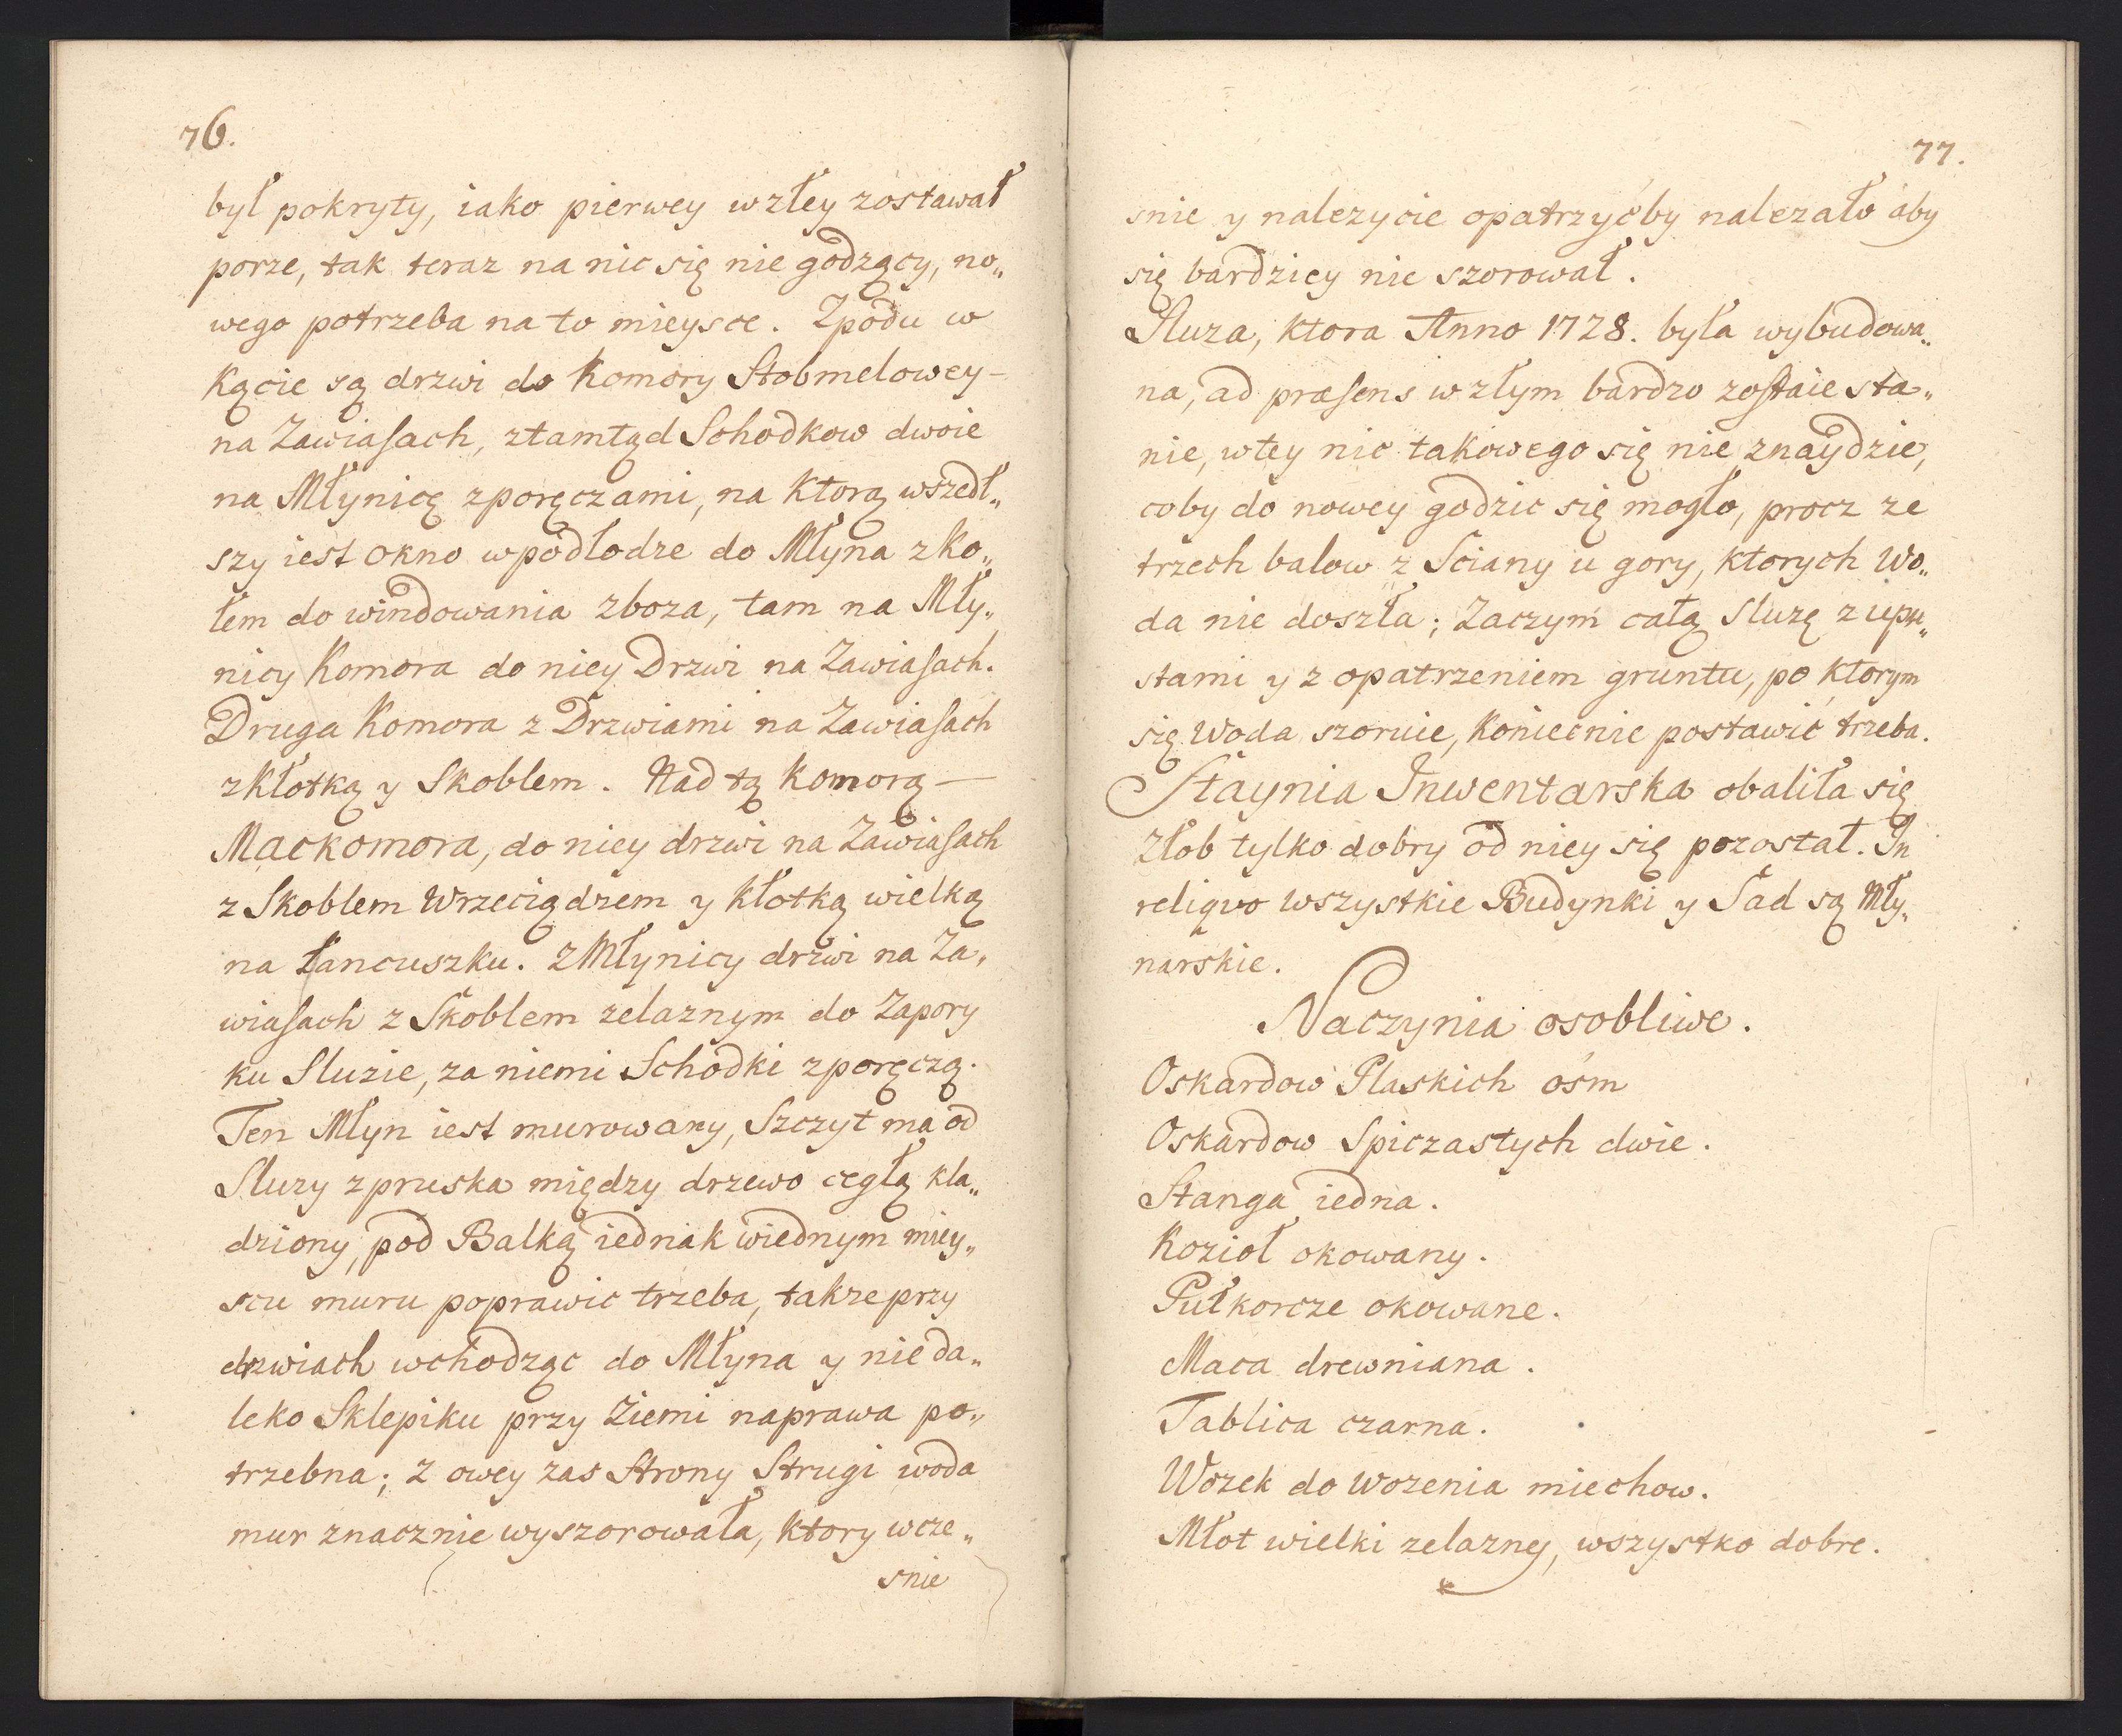 76.
był pokryty, iako pierwey w złey zostawał
porze, tak teraz na nic się nie godzący, no„
wego potrzeba na to mieysce. Zpodu w
Kącie są drzwi do Komory Stobmelowey –
na Zawiasach, ztamtąd Schodkow dwoie
na Młynicę zporęczami, na Ktorą wszedł„
szy iest okno wpodłodze do Młyna zko„
łem do windowania zboza, tam na Mły„
nicy Komora do niey Drzwi na Zawiasach.
Druga Komora z Drzwiami na Zawiasach
zKłotką y Skoblem. Nad tą Komorą –
Mackomora, do niey drzwi na Zawiasach
z Skoblem Wrzeciądzem y Kłotką wielką
na Łancuszku. z Młynicy drzwi na Za„
wiasach z Skoblem zelaznym do Zapory
ku Sluzie, za niemi Schodki zporęczą.
Ten Młyn iest murowany, Szczyt ma od
Sluzy zpruska między drzewo cegłą kla„
dziony, pod Balką iednak wiednym miey„
scu muru poprawic trzeba, takze przy
drzwiach wchodząc do Młyna y nieda„
leko Sklepiku przy Ziemi naprawa po„
trzebna; z owey zas Strony Strugi woda
mur znacznie wyszorowała, Ktory wcze„
snie
77.
snie y nalezycie opatrzyćby nalezało aby
się bardziey nie szorował.
Sluza, ktora Anno 1728. była wybudowa„
na, ad præsens w złym bardzo zostaie sta„
nie, wtey nic takowego się nie znaydzie,
coby do nowey godzic się mogło, procz ze
trzech balow z Sciany u gory, ktorych Wo„
da nie doszła; Zaczym całą Sluzę z upu„
stami y z opatrzeniem gruntu, po ktorym
się Woda szoruie, Koniecnie postawić trzeba.
Staynia Inwentarska obaliła się
Złob tylko dobry od niey się pozostał. In
reliqvo Wszystkie Budynki y Sad są Mły„
narskie.
Naczynia osobliwe.
Oskardow Plaskich ośm
Oskardow Spiczastych dwie.
Stanga iedna.
Kozioł okowany.
Pułkorcze okowane.
Maca drewniana.
Tablica czarna.
Wozek do Wozenia miechow.
Młot wielki zelazny, wszystko dobre.